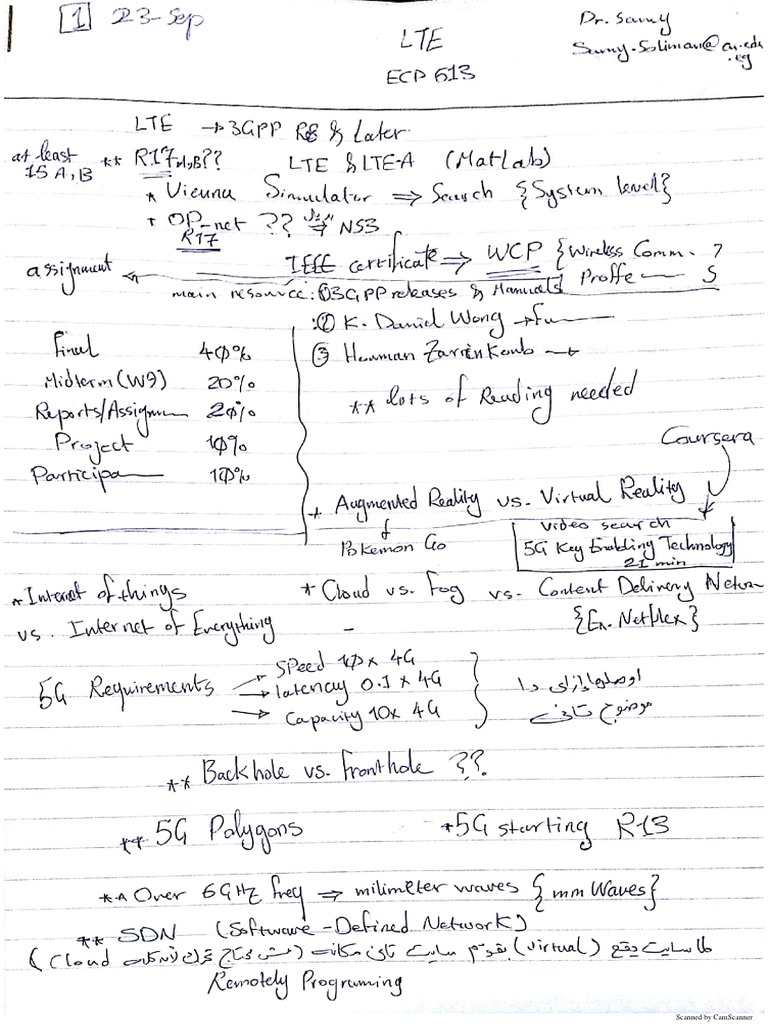 1 23-Sep
LTE
ECP 613
Dr. Samy
Samy.Soliman@cu.edu
.eg
LTE → 3GPP R8 & Later
at least
15 A, B
** R17 A,B??
LTE & LTE-A (Matlab)
* Vienna Simulator ⇒ Search {System level}
+ OP-net ?? NS3
R17
IEEE certificate ⇒ WCP {Wireless Comm. ?
assignment
Proffe S
main resource: ① 3GPP releases & Manuals
: ② K. Daniel Wong → Fu
③ Houman Zarrinkoub →
** lots of Reading needed
Final 40%
Midterm (W9) 20%
Reports/Assignm 20%
Project 10%
Participa 10%
Coursera
+ Augmented Reality vs. Virtual Reality
Pokemon Go
video search
5G Key Enabling Technology
21 min
* Internet of things
vs. Internet of Everything
* Cloud vs. Fog vs. Content Delivery Networ
{Ex. Netflex}
5G Requirements
→ Speed 10x 4G
→ latency 0.1 x 4G
→ Capacity 10x 4G
اوصلها ازاى دا
موضوع تانى
** Backhole vs. Fronthole ??
** 5G Polygons
* 5G starting R13
** Over 6GHz freq ⇒ milimeter waves {mm Waves}
** SDN (Software-Defined Network)
سايت يقع (virtual) يقوم سايت تانى مكانه Cloud)
Remotely Programing
Scanned by CamScanner